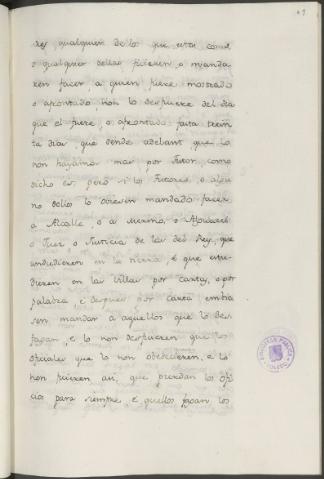 res qualquier de lo que esta come
o qualquier dellas ficieren o manda
ren facer, a quien fuere mostrado
o apontado non lo desficiere del dia
que el fuere, o apontado fasta trein
ta dias, que dende adelant, que lo
non hayamos mas por Tutor, como
dicho es, pero si los Tutores, o algu
no dellos lo oviesen mandado facer
a Alcalle, o a Merino, o Alguacil
o Juez o Justicia de las del Rey, que
andudieren en la tierra, e que estu
dieren en las villas por carta, o por
palabra, e despues por carta embia
sen mandar a aquellos que lo des
fagan, e lo non desficieren que los
oficiales que lo non obedecieren, e lo
non ficieren asi, que pierdan los ofi
cios para siempre, e quellos fagan los